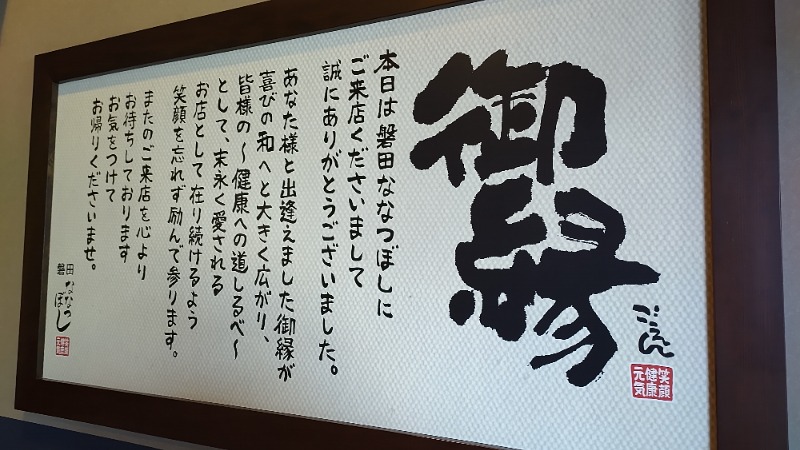 御縁
ごえん
笑顔
健康
元気
本日は磐田ななつぼしに
ご来店くださいまして
誠にありがとうございました。
あなた様と出逢えました御縁が
喜びの和へと大きく広がり、
皆様の〜健康への道しるべ〜
として、末永く愛される
お店として在り続けるよう
笑顔を忘れず励んで参ります。
またのご来店を心より
お待ちしております
お気をつけて
お帰りくださいませ。
磐田
ななつぼし
笑顔
健康
元気